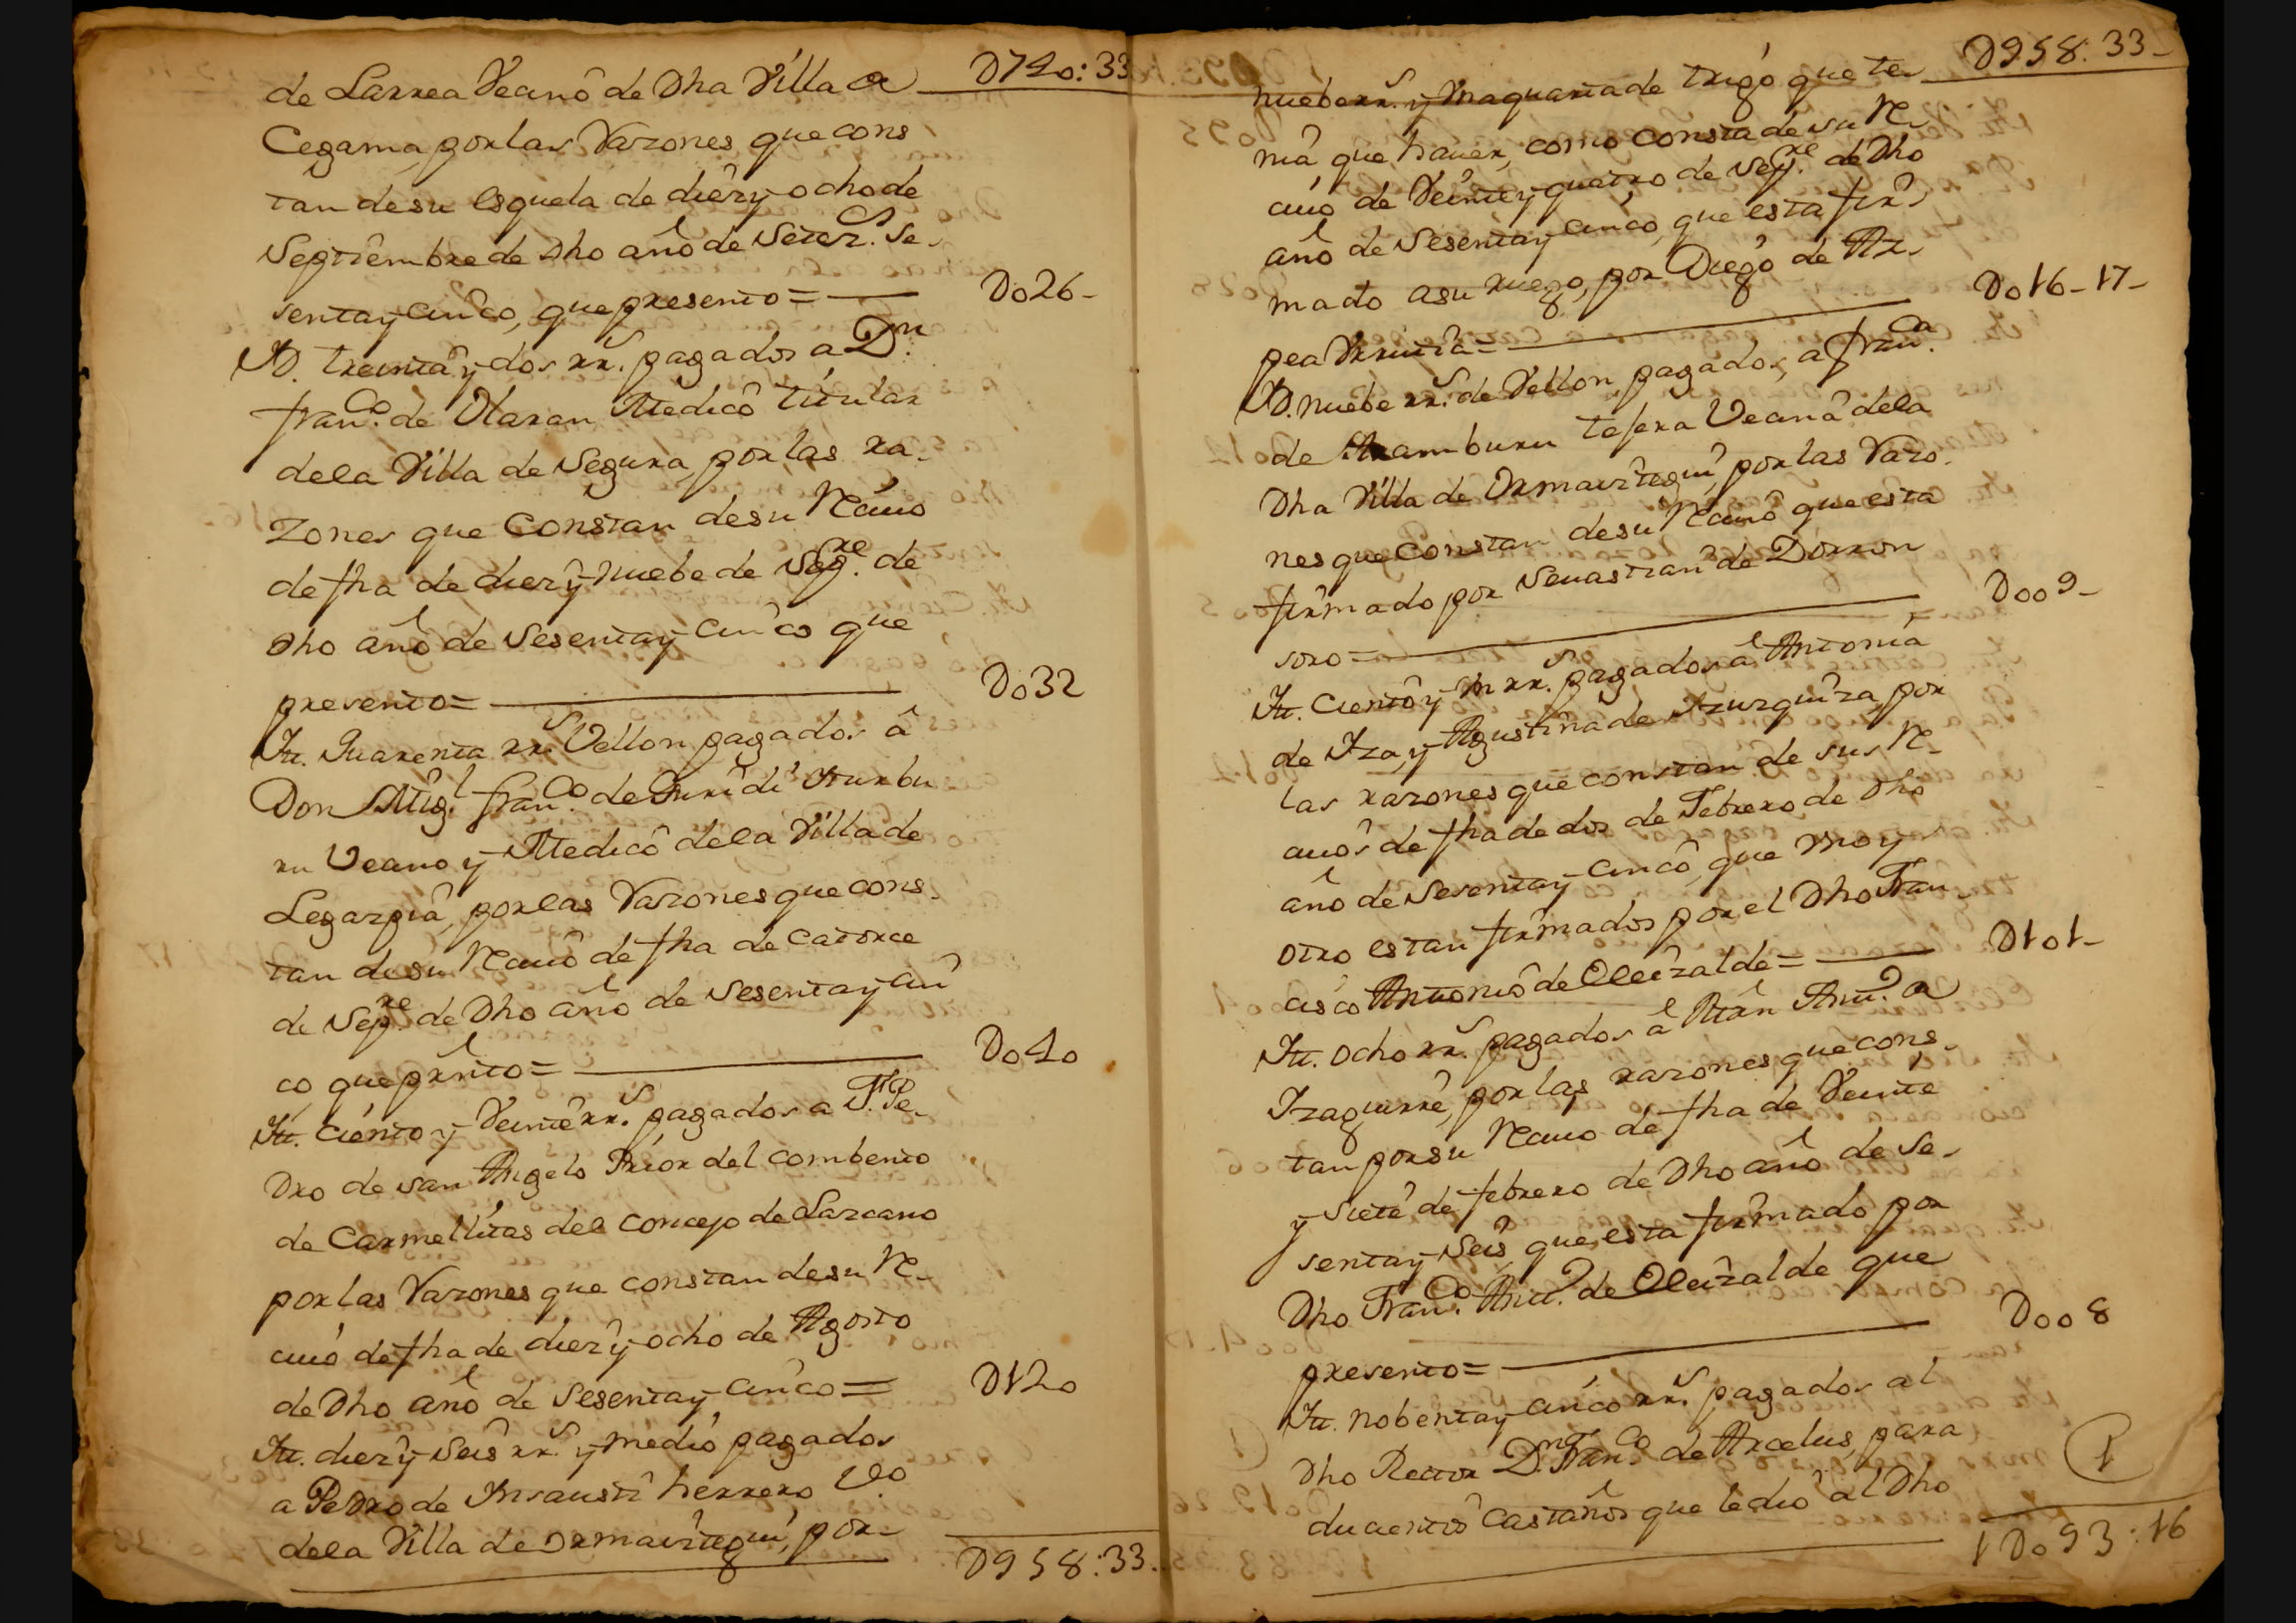 de Larrea Veano de Dha Villa a D740:33
Cegama, por las Razones que cons
tan de su esquela de diez y ocho de
Septiembre de Dho año de Setez.s Se-
senta y cinco, que presento= D026-
YD. treinta y dos rr.s pagados a D.n
fran.co de Olaran Medico titular
de la Villa de Segura, por las ra-
zones que Constan de su Reciuo
de fha de diez y nuebe de Sep.re de
Dho año de Sesenta y Cinco que
presento= D032
Itt. Quarenta rr.s Vellon pagados â
Don Mig.l fran.co de Iturbu
ru Veano y Medico de la Villa de
Legazpia, por las Razones que cons-
tan de su Reciuo de fha de Catorce
de Sep.re de Dho año de Sesenta y Cin
co que prêto= D040
Itt. Ciento y Veinte rr.s pagados a F. Pe-
dro de San Angelo Prior del combento
de Carmelitas del Concejo de Lazcano
por las Razones que constan de su Re-
ciuo de fha de diez y ocho de Agosto
de Dho año de Sesenta y Cinco= D120
Itt. diez y Seis rr.s y medio pagados
a Pedro de Insausti herrero V.o
de la Villa de Ormaiztegui, por- D958:33.
D958:33-
nuebe rr.s y maquaria de trigo que te-
nia que hauer, como Consta de su Re-
ciuo de Veinte y quatro de Sep.re de Dho
año de Sesenta y cinco, que esta fir-
mado a su ruego, por Diego de Az-
pea Vrrutia= D016-17-
YD. nuebe rr.s de Vellon, pagados, a fran.ca
de Aramburu tejera Veana de la
Dha Villa de Ormaiztegui, por las Razo-
nes que Constan de su Reciuo que esta
firmado por Seuastian de Dorron
soro= D009-
Itt. Ciento y Un rr.s pagados â Antonia
de Yza, y Agustina de Yzurquiza, por
las razones que constan de sus Re-
ciuos de fha de dos de Febrero de Dho
año de Sesenta y Cinco, que Vno y
otro estan firmados por el Dho Fran-
cisco Antonio de Oleizalde= D101-
Itt. Ocho rr.s pagados â Mrn Ant.o a
Yzaguirre, por las razones que cons-
tan por su Reciuo de fha de Veinte
y Siete de febrero de Dho año de Se-
senta y Seis que esta firmado por
Dho Fran.co Ant.o de Oleizalde que
presento= D008
Itt. nobenta y Cinco rr.s pagados al
Dho Rector D.n Fran.co de Arcelus, para
ducientos Castaños que le dio al Dho
1D093:16